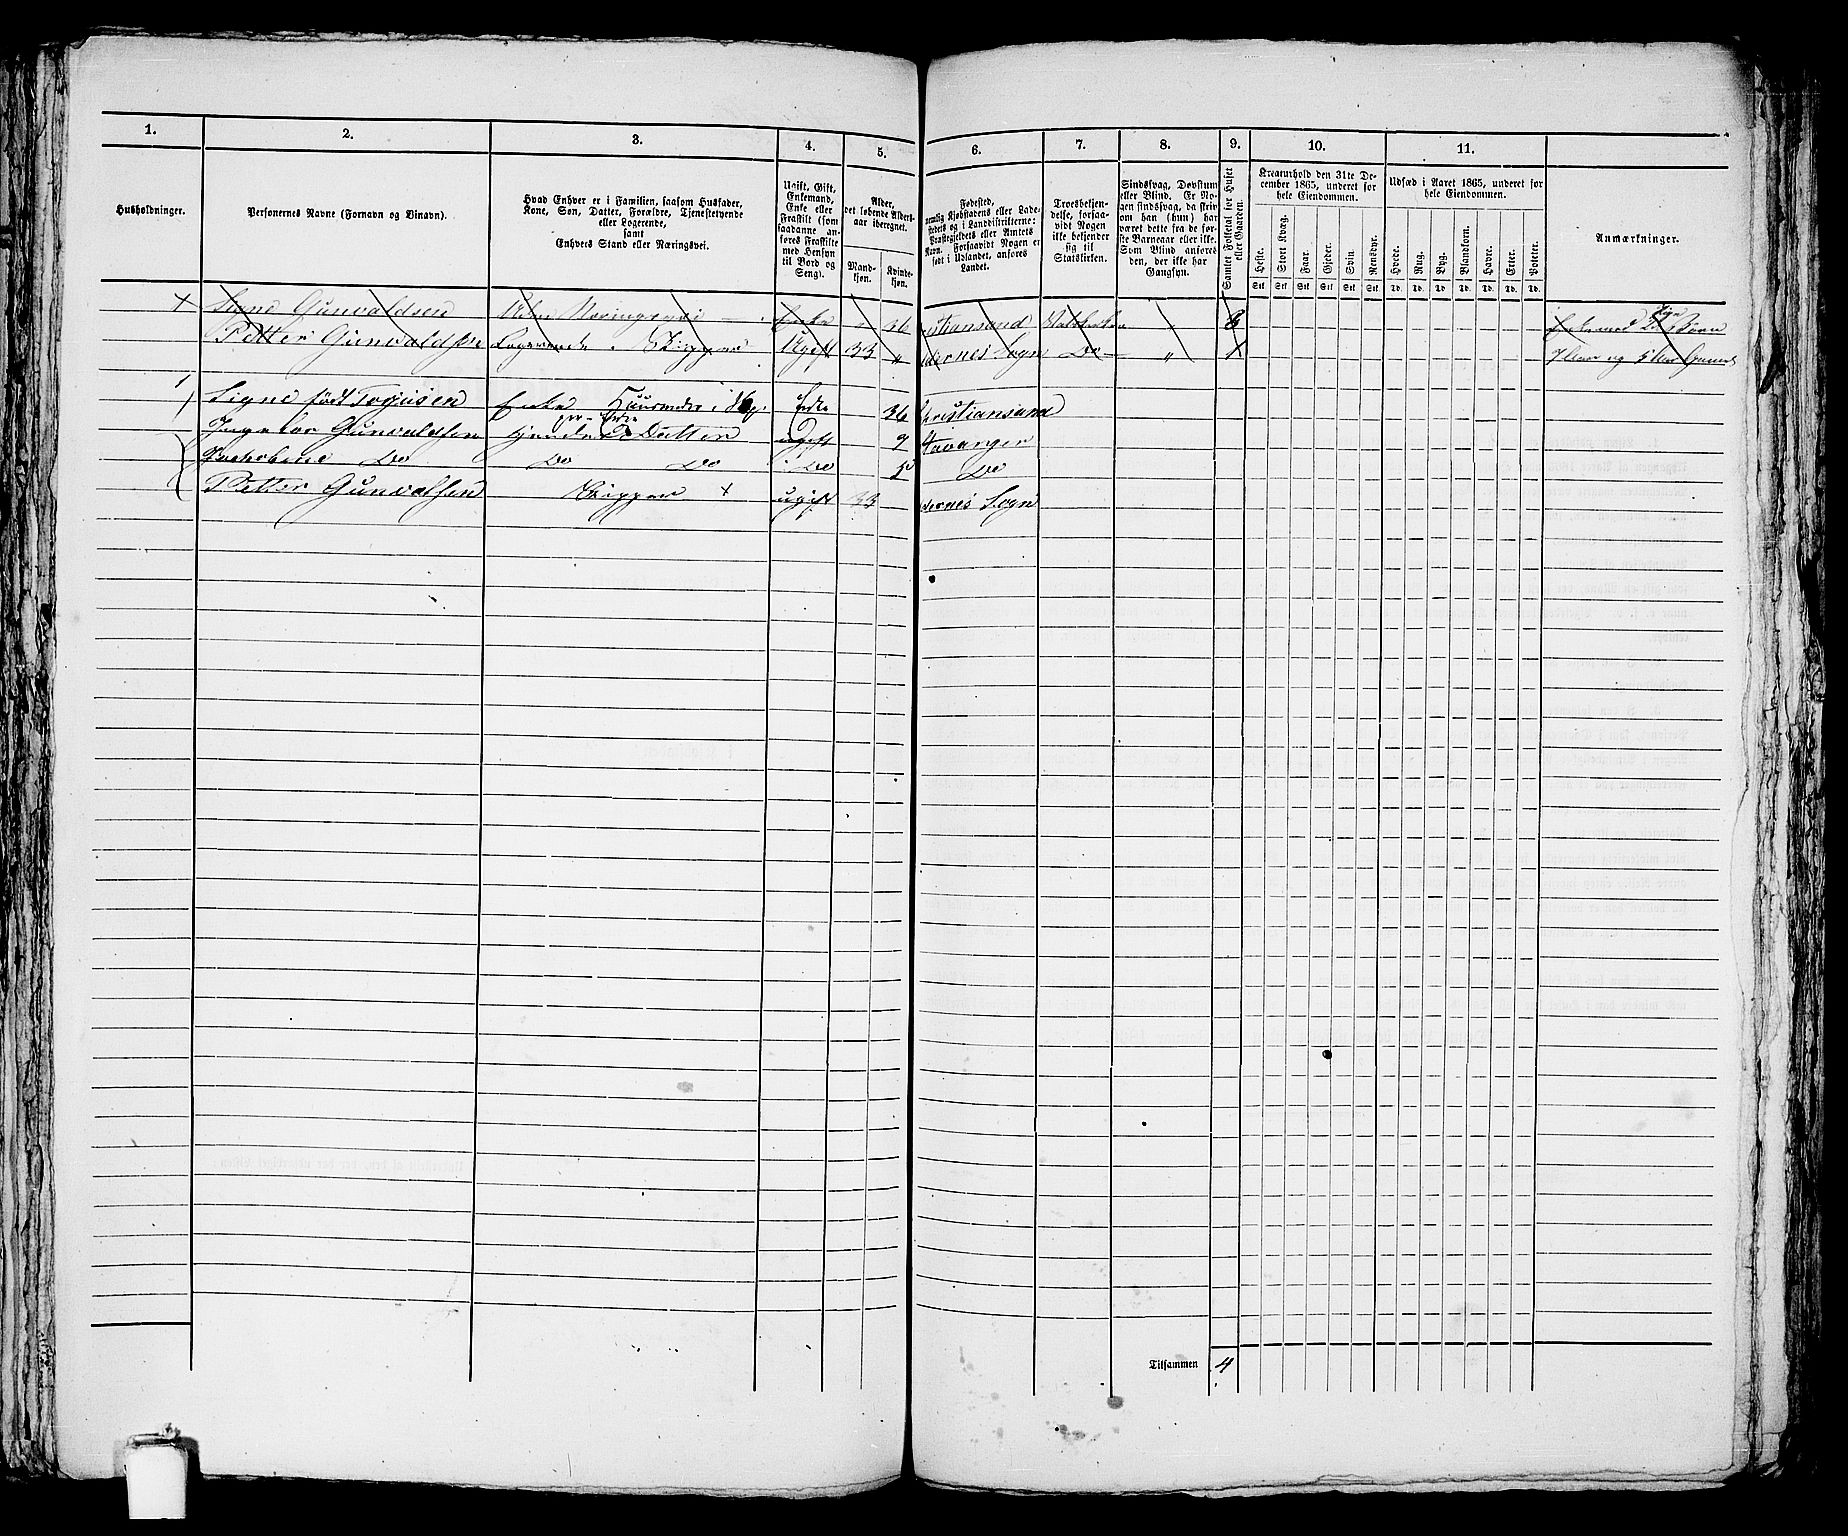 1. 2. 3. 4. 5. 6. 7. 8. 9. 10. 11.
Husholdninger.
Personernes Navne (Fornavn og Tilnavn).
Hvad Enhver er i Familien, saasom Husfader,
Kone, Søn, Datter, Forældre, Tjenestetyende
eller Logerende,
samt
Enhvers Stand eller Næringsvei.
Ugift, Gift,
Enkemand,
Enke eller
Fraskilt (som
saadanne an-
føres Fraskilte
med Hensyn
til Bord og
Seng).
Alder,
det løbende Alders-
aar iberegnet.
Mand-
kjøn.
Kvinde-
kjøn.
Fødested,
nemlig Kjøbstadens eller Lade-
stedets og i Landdistrikterne:
Præstegjeldets eller Amtets
Navn. Forsaavidt Nogen er
født i Udlandet, anføres
Landet.
Troesbekjen-
delse, forsaa-
vidt Nogen
ikke bekjender
sig til
Statskirken.
Sindssvag, Døvstum
eller Blind. Er No-
gen sindssvag, da skriv
om han (hun) har
været dette fra de før-
ste Barneaar eller ikke.
Som Blind anføres
den, der ikke har
Gangsyn.
Samlet Folketal for Huset
eller Gaarden.
Kreaturhold den 31te De-
cember 1865, underet for
hele Eiendommen.
Heste. Stort Kvæg. Faar. Gjeder. Svin. Rensdyr.
Stk Stk Stk Stk Stk Stk
Udsæd i Aaret 1865, underet for
hele Eiendommen.
Hvede. Rug. Byg. Blandkorn. Havre. Erter. Poteter.
Td. Td. Td. Td. Td. Td. Td.
Anmærkninger.
x Signe Gunvaldsen Uden Næringsvei Enke " 36 istiansand Statskirken
Petter Gunvaldsen Logerende Skipper Ugift 33 " dernes Sogn Do " 1
1 Signe født Torjusen Enke Enke 36 Christiansand
Gunvaldsen Datter ugift 9 Stavanger
Do Do Do Do 5 Do
Petter Gunvaldsen Skipper x ugift 33 dernes Sogn
Tilsammen 4